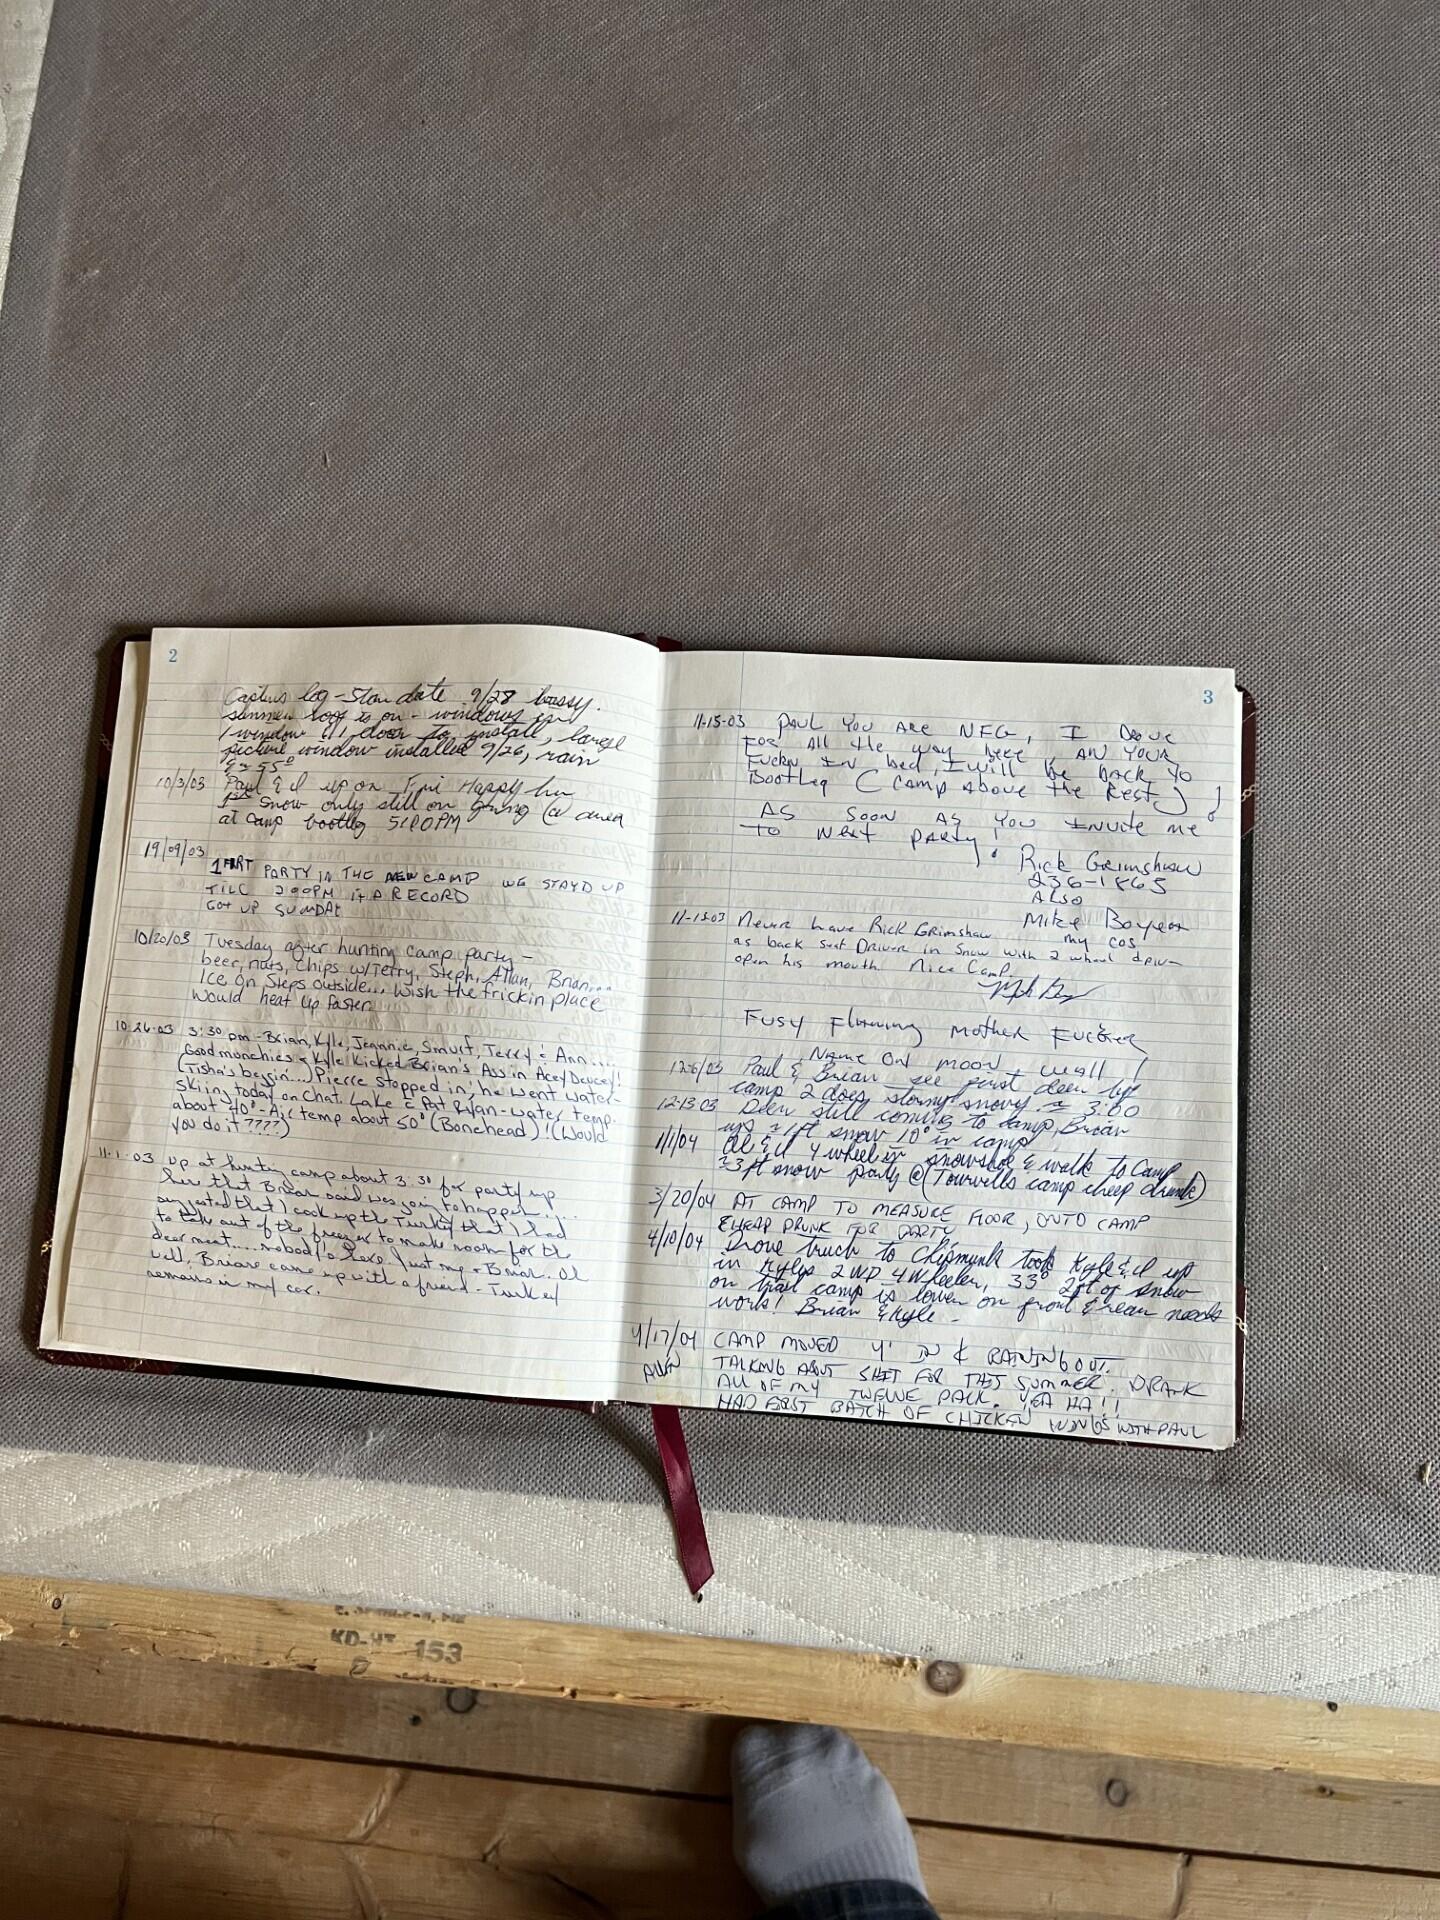 2
Captins log - Star date 9/28 bossy.
summer roof is on - windows in
1 window & 1 door to install, large
picture window installed 9/26, rain
& ≈ 55°
10/3/03 Paul & Al up on Fri Happy hr
1st Snow only still on going @ area
at camp bootleg 5:00PM
19/09/03
1 PARTY IN THE NEW CAMP WE STAYD UP
TILL 200PM A RECORD
GOT UP SUNDAY
10/20/03 Tuesday after hunting camp party -
beer, nuts, chips w/Terry, Steph, Allan, Brian...
Ice on steps outside... wish the frickin place
would heat up faster.
10-26-03 3:30 pm - Brian, Kyle, Jeannie, Smurf, Terry & Ann....
Good munchies & Kyle Kicked Brian's Ass in Acey Deucey!
(Tisha's beggin...) Pierre stopped in; he went water-
skiing today on Chat. Lake c Pat Ryan - water temp.
about 40° - Air temp about 50° (Bonehead)! (Would
you do it ????)
11-1-03 up at hunting camp about 3:30 for party up
here that Brian said was going to happen....
suggested that I cook up the Turkey that I had
to take out of the freezer to make room for the
deer meat.... nobody's here. Just me & Brian. Oh
well, Brian came up with a friend - Turkey
remains in my car.
3
11-15-03 PAUL YOU ARE NFG, I Drove
FOR All the way here, AN YOUR
Fuckn IN bed, I will be back to
Bootleg (Camp Above the Rest)!
AS SOON AS YOU INVITE me
TO NEXT PARTY!
Rick Grimshaw
236-1865
ALSO
Mike Boyea
my cos
11-15-03 Never have Rick Grimshaw
as back seat Driver in Snow with 2 wheel drive
open his mouth. Nice Camp
FUSY Flaming Mother Fucker
Name On moon wall!
12-6/03 Paul & Brian see first deer by
camp 2 does, stormy snowy ≈ 3:00
12-13-03 Deer still coming to camp, Brian
up ≈ 1 ft snow 10° in camp
1/1/04 Al & Al 4 wheelin snowshoe & walk to Camp
≈3 ft snow party @ (Tourvills camp cheep drunk)
3/20/04 AT CAMP TO MEASURE FLOOR, ONTO CAMP
CHEAP DRUNK FOR PARTY
4/10/04 Drove truck to Chipmunk took Kyle & Al up
in Kyles 2WD 4Wheeler, 33° 2ft of snow
on trail camp is lower on front & rear needs
work! Brian & Kyle -
4/17/04 CAMP MOVED 4' IN & RAINING OUT.
ALLEN TALKING ABOUT SHIT FOR THIS SUMMER. DRANK
ALL OF MY TWELVE PACK. YEA HA!!
HAD FIRST BATCH OF CHICKEN WINGS WITH PAUL
KD-HT 153